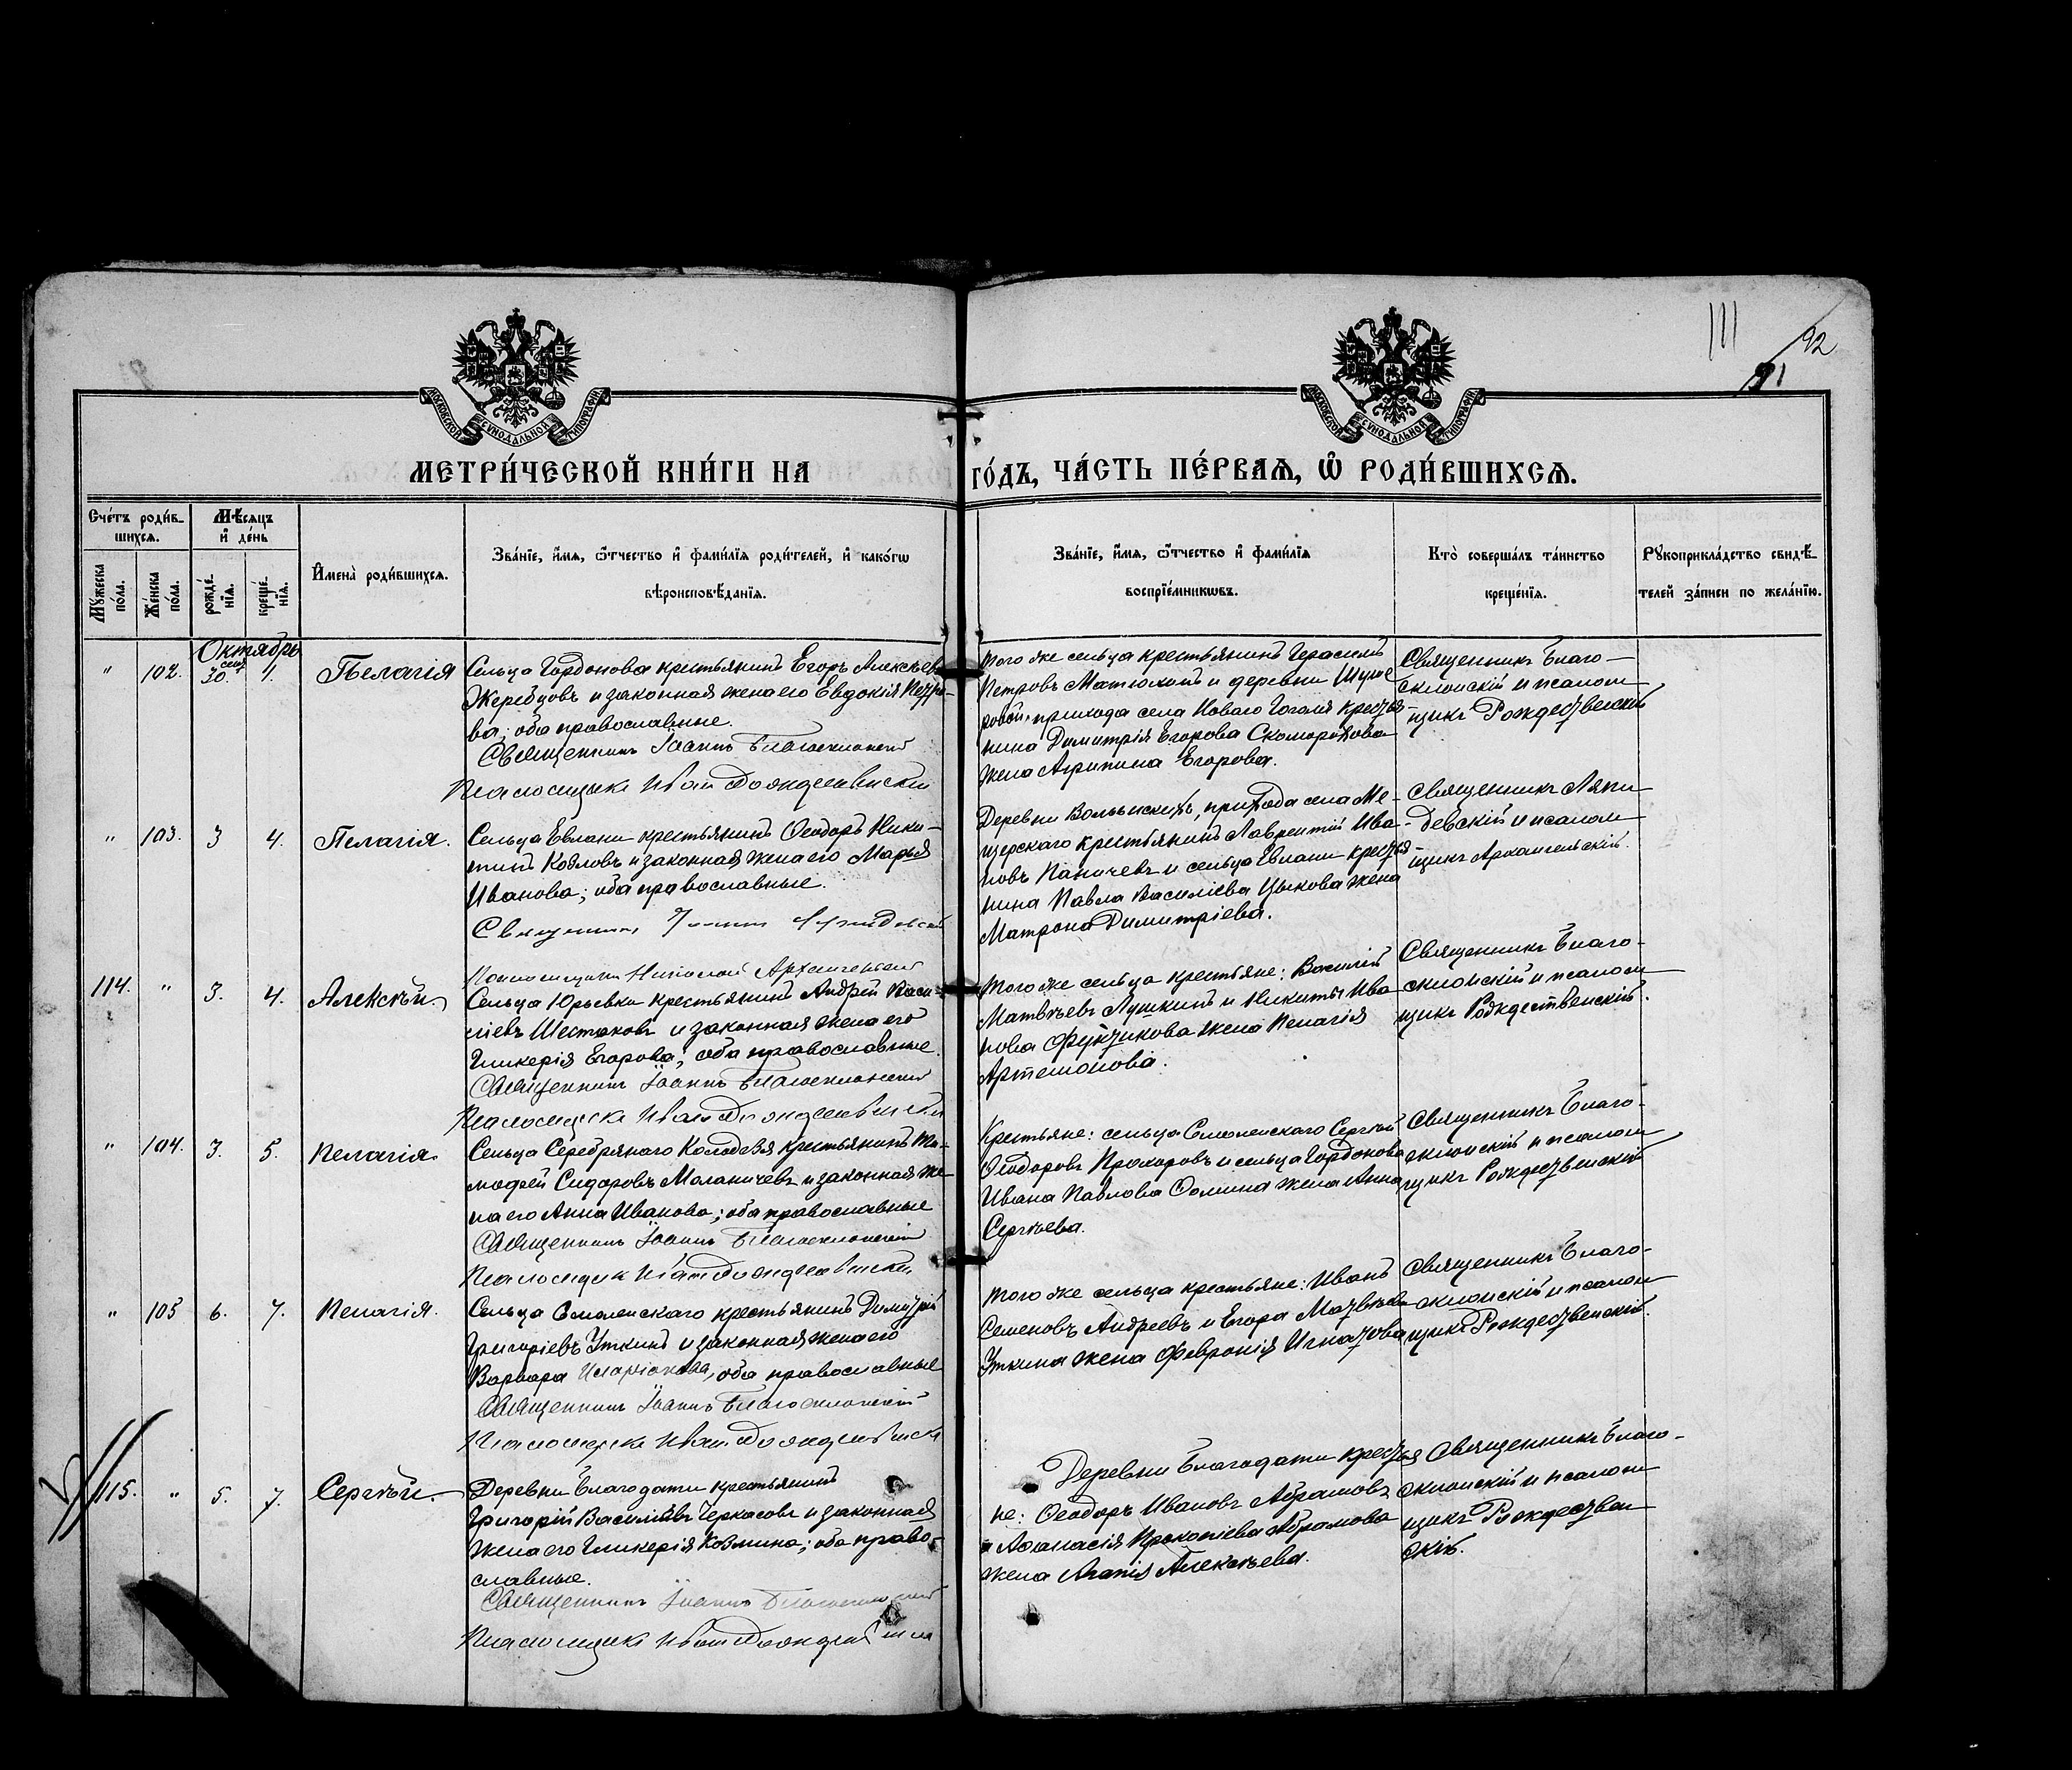 111
92
91
МОСКОВСКОЙ СѴНОДАЛЬНОЙ ТИПОГРАФІИ
МОСКОВСКОЙ СѴНОДАЛЬНОЙ ТИПОГРАФІИ
МЕТРИ́ЧЕСКОЙ КНИ́ГИ НА ГО́ДЪ, ЧА́СТЬ ПЕ́РВАѦ, Ѡ҆ РОДИ́ВШИХСѦ.
Сче́тъ роди́в-
шихсѧ.
Мѣсѧцъ
и҆ де́нь
Мꙋ́жеска
по́ла.
Же́нска
по́ла.
рожде́-
нїѧ.
креще́-
нїѧ.
И҆мена̀ роди́вшихсѧ.
Зва́нїе, и҆́мѧ, ѻ҆́тчество и҆ фами́лїѧ роди́телей, и҆ како́гѡ
вѣроисповѣ́данїѧ.
Зва́нїе, и҆́мѧ, ѻ҆́тчество и҆ фами́лїѧ
воспрїе́мникѡвъ.
Кто̀ соверша́лъ та́инство
креще́нїѧ.
Рꙋкоприкла́дство свидѣ́-
телей за́писи по жела́нїю.
Октябрь
" 102. сент. 30 1. Пелагія
Сельца Гордонова крестьянинъ Егоръ Алексѣевъ
Жеребцовъ и законная жена его Евдокія Петро-
ва; оба православные.
Священникъ Іоаннъ Благосклонскій
Псаломщикъ Иван Рождественский
того же сельца крестьянинъ Герасимъ
Петровъ Матюхинъ и деревни
прихода села Новаго Гоголя крестья-
нина Димитрія Егорова Скоморохова
жена Агрипина Егорова.
Священникъ Благо-
склонскій и псалом
щикъ Рождественскій
" 103. 3 4. Пелагія.
Сельца Евлани крестьянинъ Ѳеодоръ Ники-
тинъ Козловъ и законная жена его Марья
Иванова; оба православные.
Священникъ
Псаломщикъ Николай Архангельский
Деревни Вольныхъ, прихода села Ме-
щерскаго крестьянинъ Лаврентій Ива-
новъ Паничевъ и сельца Евлани крестья-
нина Павла Василіева Цыкова жена
Матрона Димитріева.
Священникъ Ляпи-
девскій и псалом
щикъ Архангельскій.
114. " 3. 4. Алексѣй.
Сельца Юрьевки крестьянинъ Андрей Васи-
ліевъ Шестаковъ и законная жена его
Гликерія Егорова; оба православные.
Священникъ Іоаннъ Благосклонскій
Псаломщикъ Иван Рождественский
того же сельца крестьяне: Василій
Матвѣевъ Лушкинъ и Никиты Ива
нова жена Пелагія
Артемонова.
Священникъ Благо-
склонскій и псалом
щикъ Рождественскій.
" 104. 3. 5. Пелагія
Сельца Серебрянаго Колодезя крестьянинъ Ти-
мофей Сидоровъ Маланичевъ и законная же-
на его Анна Иванова; оба православные
Священникъ Іоаннъ Благосклонскій
Псаломщикъ Иван Рождественский
Крестьяне: сельца Смоленскаго Сергѣй
Ѳеодоровъ Прохоровъ и сельца Гордонова
Ивана Павлова Ѳомина жена Анна
Сергѣева.
Священникъ Благо-
склонскій и псалом
щикъ Рождественскій
" 105 6. 7. Пелагія.
Сельца Смоленскаго крестьянинъ Димитрій
Григоріевъ Уткинъ и законная жена его
Варвара Иларіонова, оба православные
Священникъ Іоаннъ Благосклонскій
Псаломщикъ Иван Рождественский
того же сельца крестьяне: Иванъ
Семеновъ Андреевъ и Егора Матвѣева
Уткина жена Февронія Игнатова
Священникъ Благо-
склонскій и псалом
щикъ Рождественскій.
115. " 5. 7. Сергѣй.
Деревни Благодати крестьянинъ
Григорій Василіевъ Черкасовъ и законная
жена его Гликерія Козмина; оба право-
славные.
Священникъ Іоаннъ Благосклонскій
Псаломщикъ Иван Рождественский
Деревни Благодати крестья
не: Ѳеодоръ Ивановъ Абрамовъ
и Аѳанасія Прокопіева Абрамова
жена Агапія Алексѣева.
Священникъ Благо-
склонскій и псалом
щикъ Рождествен
скій.